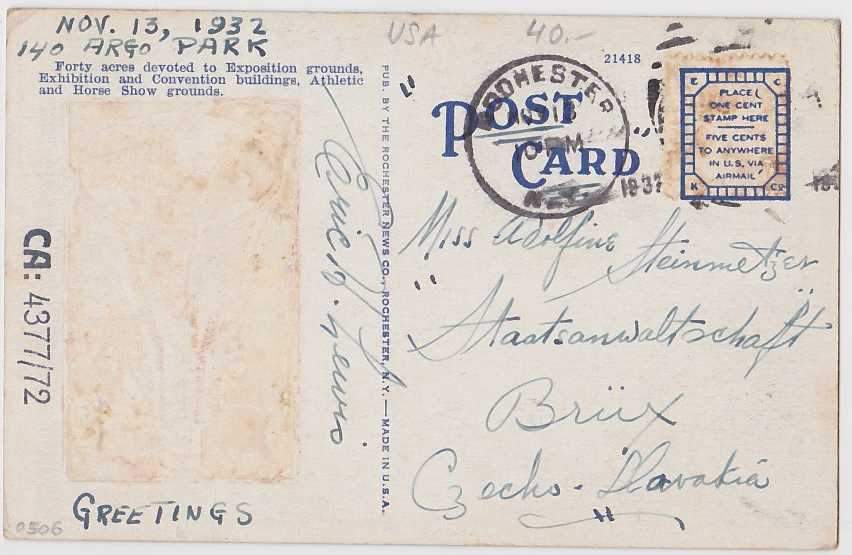 NOV. 13, 1932
140 ARGO PARK
Forty acres devoted to Exposition grounds,
Exhibition and Convention buildings, Athletic
and Horse Show grounds.
USA 40.-
21418
POST
CARD
ROCHESTER
N.Y.
1932
PLACE
ONE CENT
STAMP HERE
FIVE CENTS
TO ANYWHERE
IN U.S. VIA
AIRMAIL
E C
K Co
PUB. BY THE ROCHESTER NEWS CO., ROCHESTER, N.Y. — MADE IN U.S.A.
Eric W. Lewis
Miss Adolfine
Steinmetzer
Staatsanwaltschaft
Brüx
Czecho-Slovakia
CA: 4377/72
GREETINGS
0506